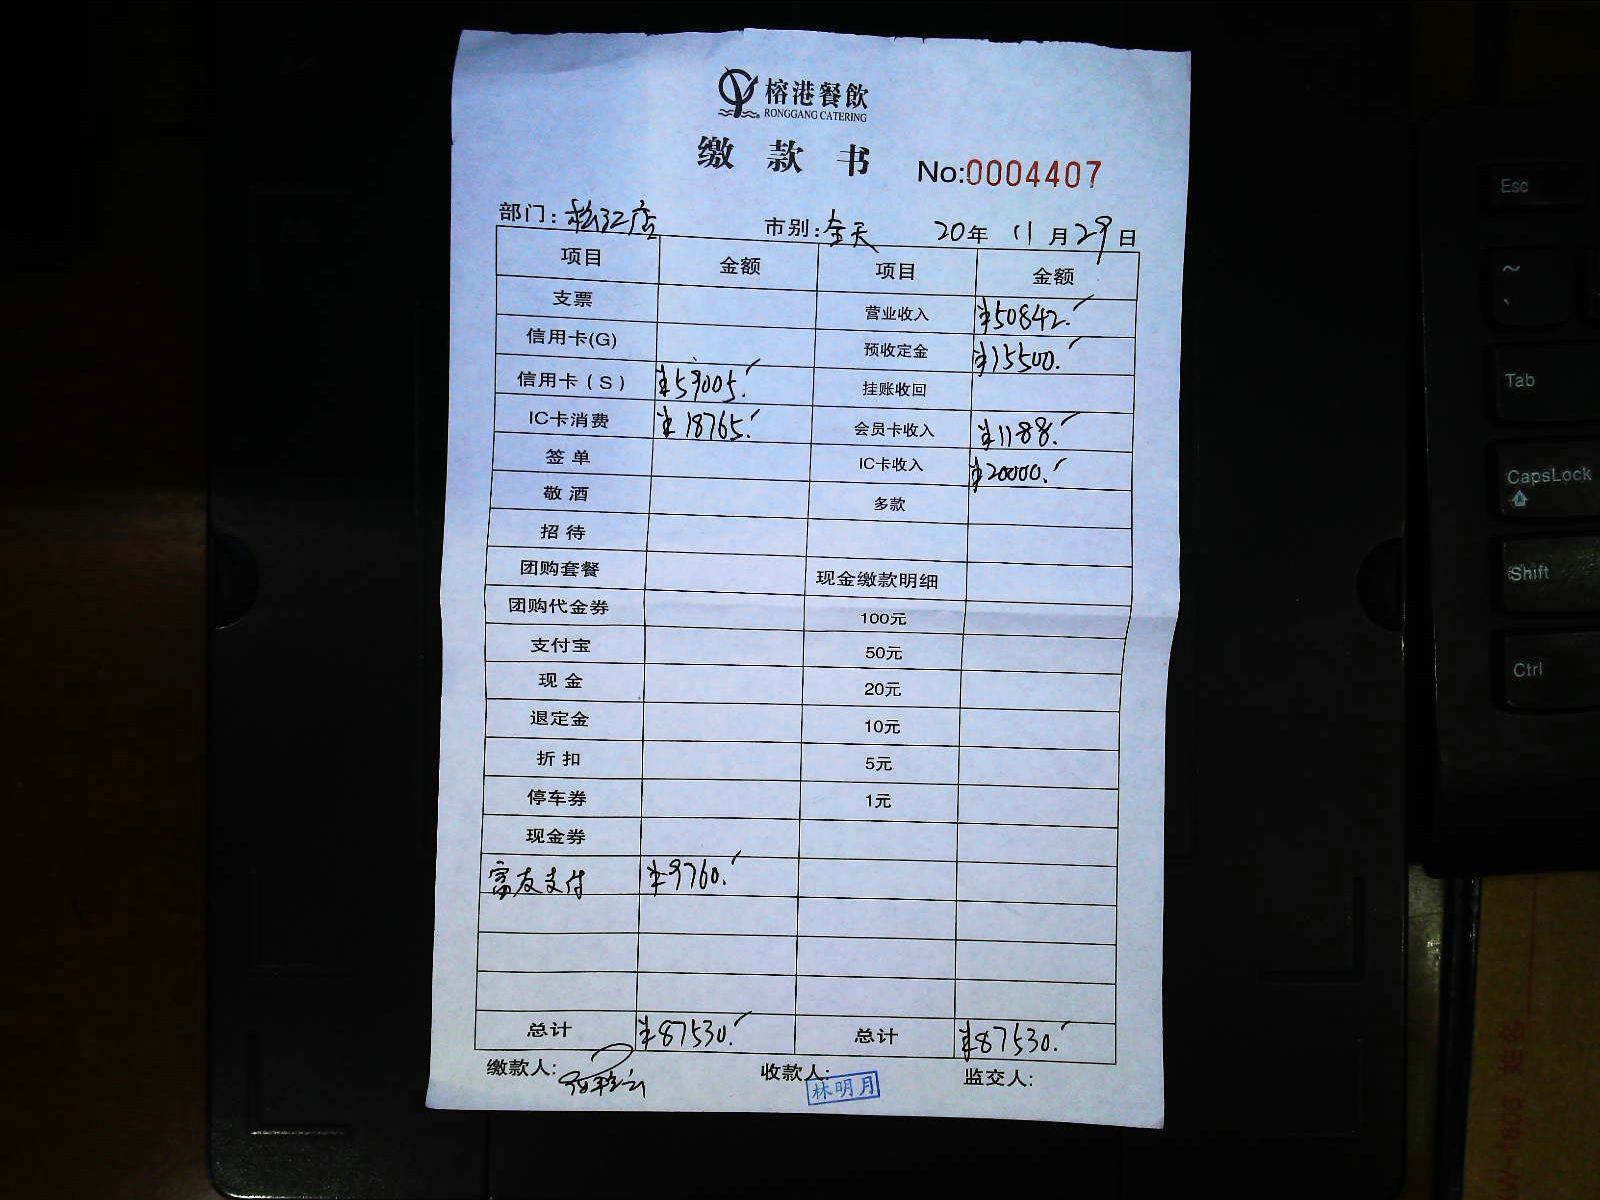 榕港餐飲
RONGGANG CATERING
缴 款 书
No:0004407
部门: 松江店 市别: 全天 20年 11月29日
项目 金额 项目 金额
支票 营业收入 ¥50842.
信用卡(G) 预收定金 ¥15500.
信用卡(S) ¥59005. 挂账收回
IC卡消费 ¥18765. 会员卡收入 ¥1188.
签单 IC卡收入 ¥20000.
敬酒 多款
招待
团购套餐 现金缴款明细
团购代金券 100元
支付宝 50元
现金 20元
退定金 10元
折扣 5元
停车券 1元
现金券
富友支付 ¥9760.
总计 ¥87530. 总计 ¥87530.
缴款人: 收款人: 林明月 监交人:
Esc
~
`
Tab
CapsLock
Shift
Ctrl